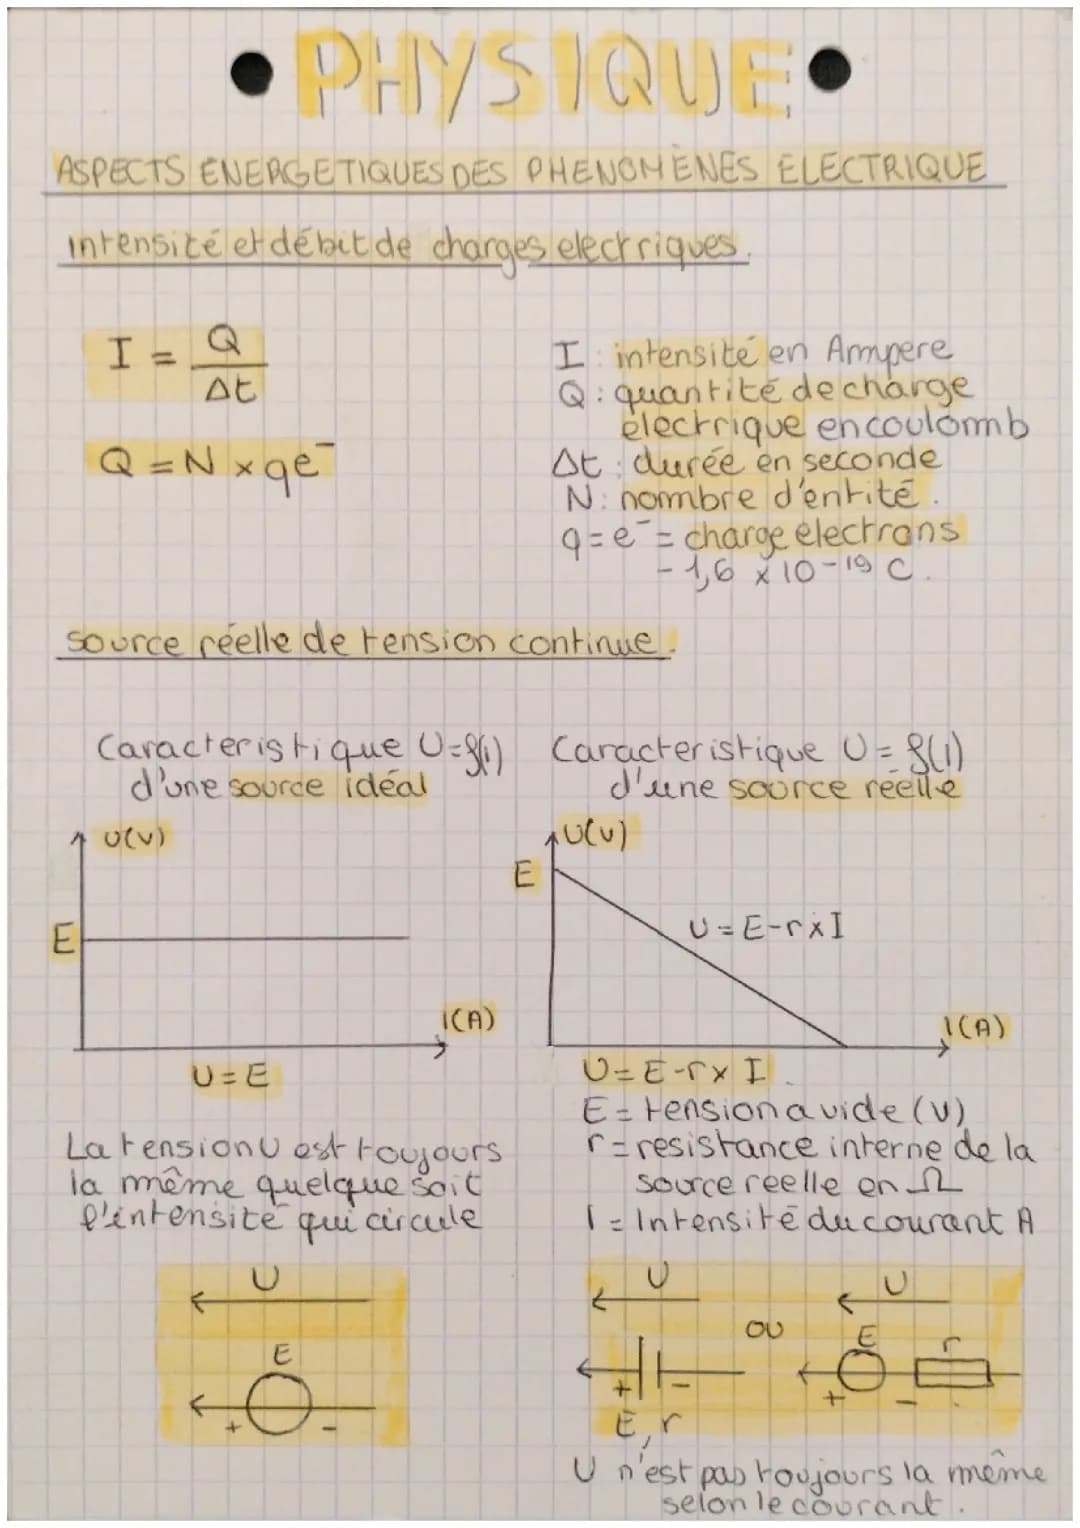 • PHYSIQUE •
ASPECTS ENERGETIQUES DES PHENOMÈNES ELECTRIQUE
intensité et débit de charges electriques.
I = Q / Δt
Q = N × qe⁻
I : intensité en Ampere
Q : quantité de charge
électrique en coulomb
Δt : durée en seconde
N : nombre d'entité.
q = e⁻ = charge electrons
- 1,6 × 10-¹⁹ C.
source réelle de tension continue.
Caracteristique U=f(I)
d'une source idéal
U(V)
E
I(A)
U = E
La tension U est toujours
la même quelque soit
l'intensité qui circule
U
E
+ -
Caracteristique U = f(I)
d'une source réelle
U(V)
E
U = E-r×I
I(A)
U = E-r× I.
E = tension a vide (V)
r = resistance interne de la
source reelle en Ω
I = Intensité du courant A
U
+ -
E, r
OU
U
E r
+ -
U n'est pas toujours la même
selon le courant.